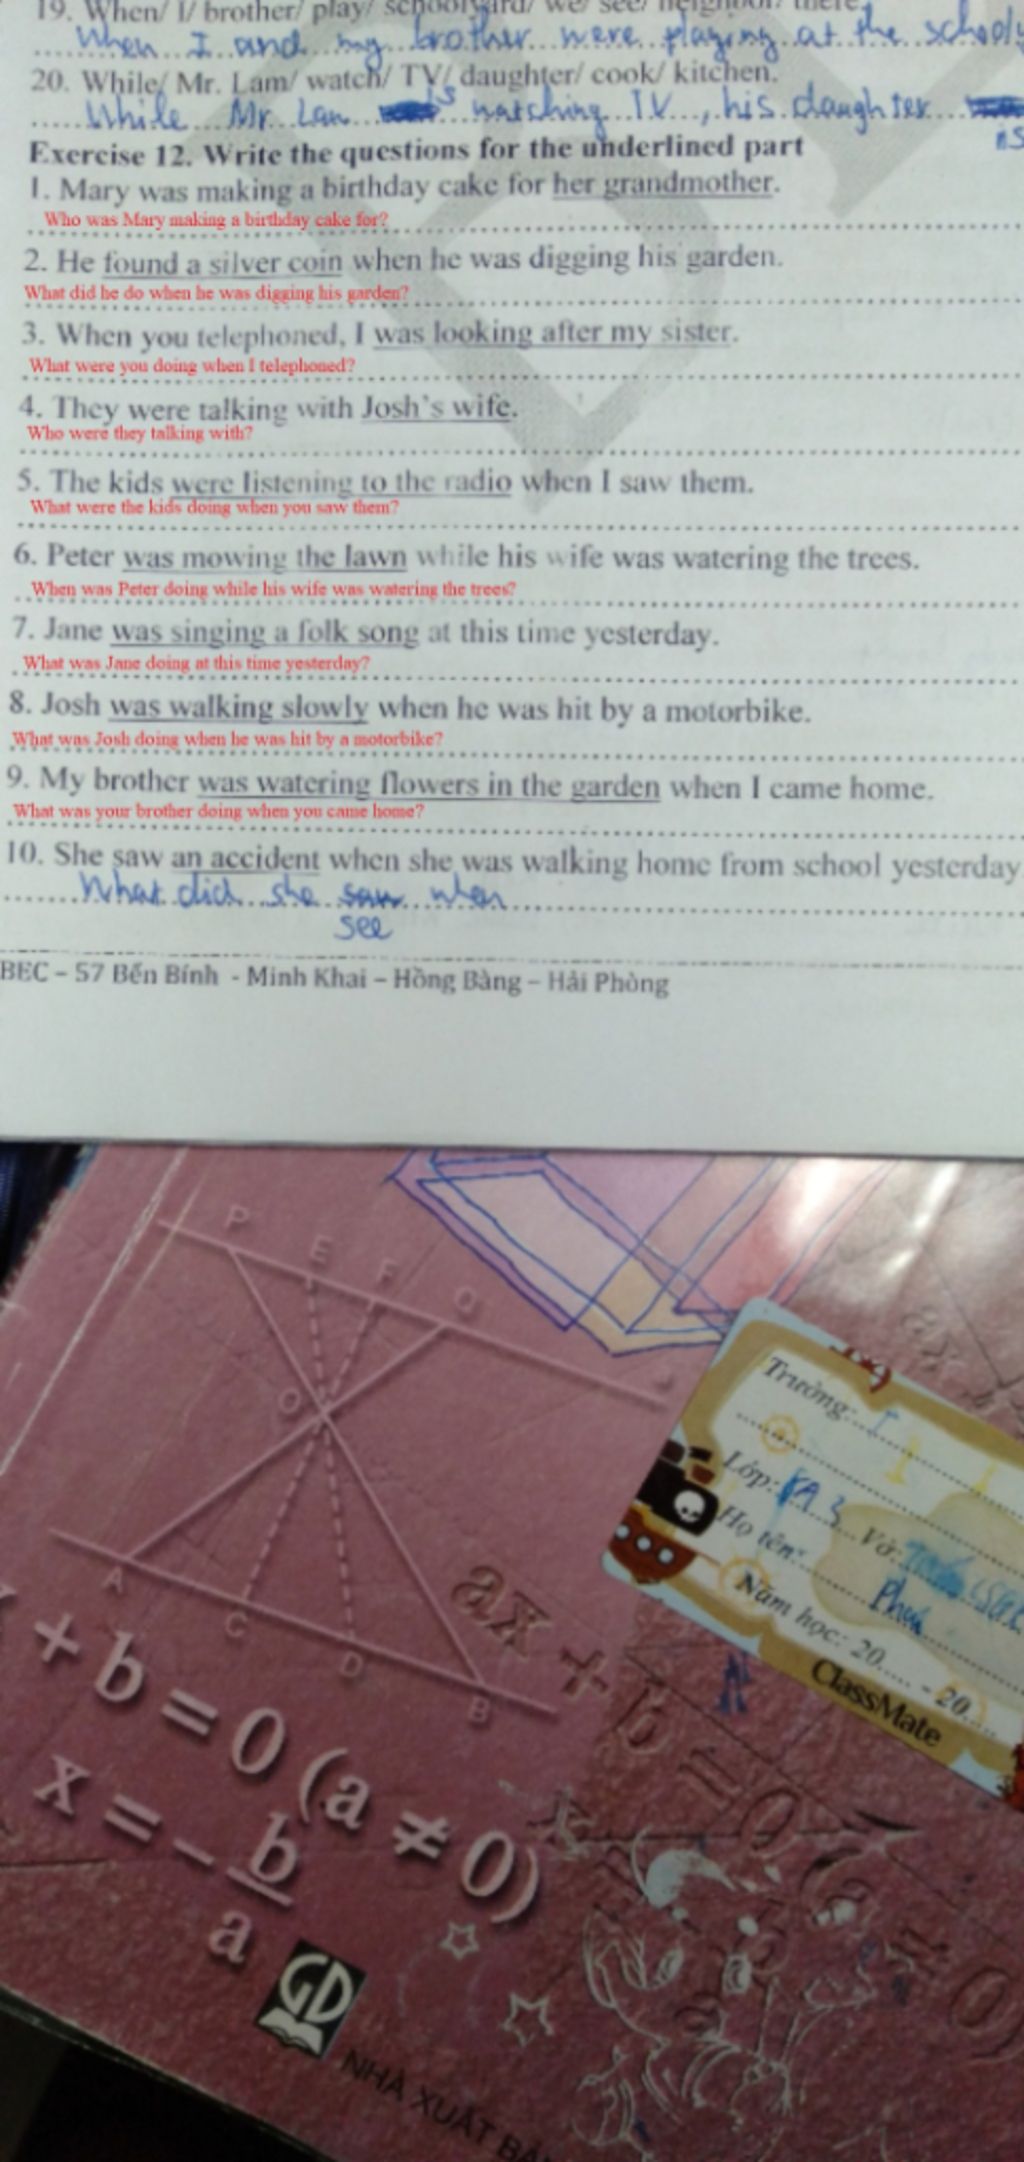 19. When/ I/ brother/ play/ schoolyard/ we/ see/ neighbour/ there.
When I and my brother were playing at the schooly
20. While/ Mr. Lam/ watch/ TV/ daughter/ cook/ kitchen.
While Mr. Lam is watching TV, his daughter
is
Exercise 12. Write the questions for the underlined part
1. Mary was making a birthday cake for her grandmother.
Who was Mary making a birthday cake for?
2. He found a silver coin when he was digging his garden.
What did he do when he was digging his garden?
3. When you telephoned, I was looking after my sister.
What were you doing when I telephoned?
4. They were talking with Josh's wife.
Who were they talking with?
5. The kids were listening to the radio when I saw them.
What were the kids doing when you saw them?
6. Peter was mowing the lawn while his wife was watering the trees.
When was Peter doing while his wife was watering the trees?
7. Jane was singing a folk song at this time yesterday.
What was Jane doing at this time yesterday?
8. Josh was walking slowly when he was hit by a motorbike.
What was Josh doing when he was hit by a motorbike?
9. My brother was watering flowers in the garden when I came home.
What was your brother doing when you came home?
10. She saw an accident when she was walking home from school yesterday
What did she saw when
see
BEC – 57 Bến Bính - Minh Khai – Hồng Bàng – Hải Phòng
P
E
F
Q
O
A
C
D
B
Trường:
Lớp: 8A3 Vở:
Họ tên: Phúc
Năm học: 20.... - 20....
ClassMate
ax + b = 0
+ b = 0 (a ≠ 0)
x = - b
a
GD
NHÀ XUẤT BẢN